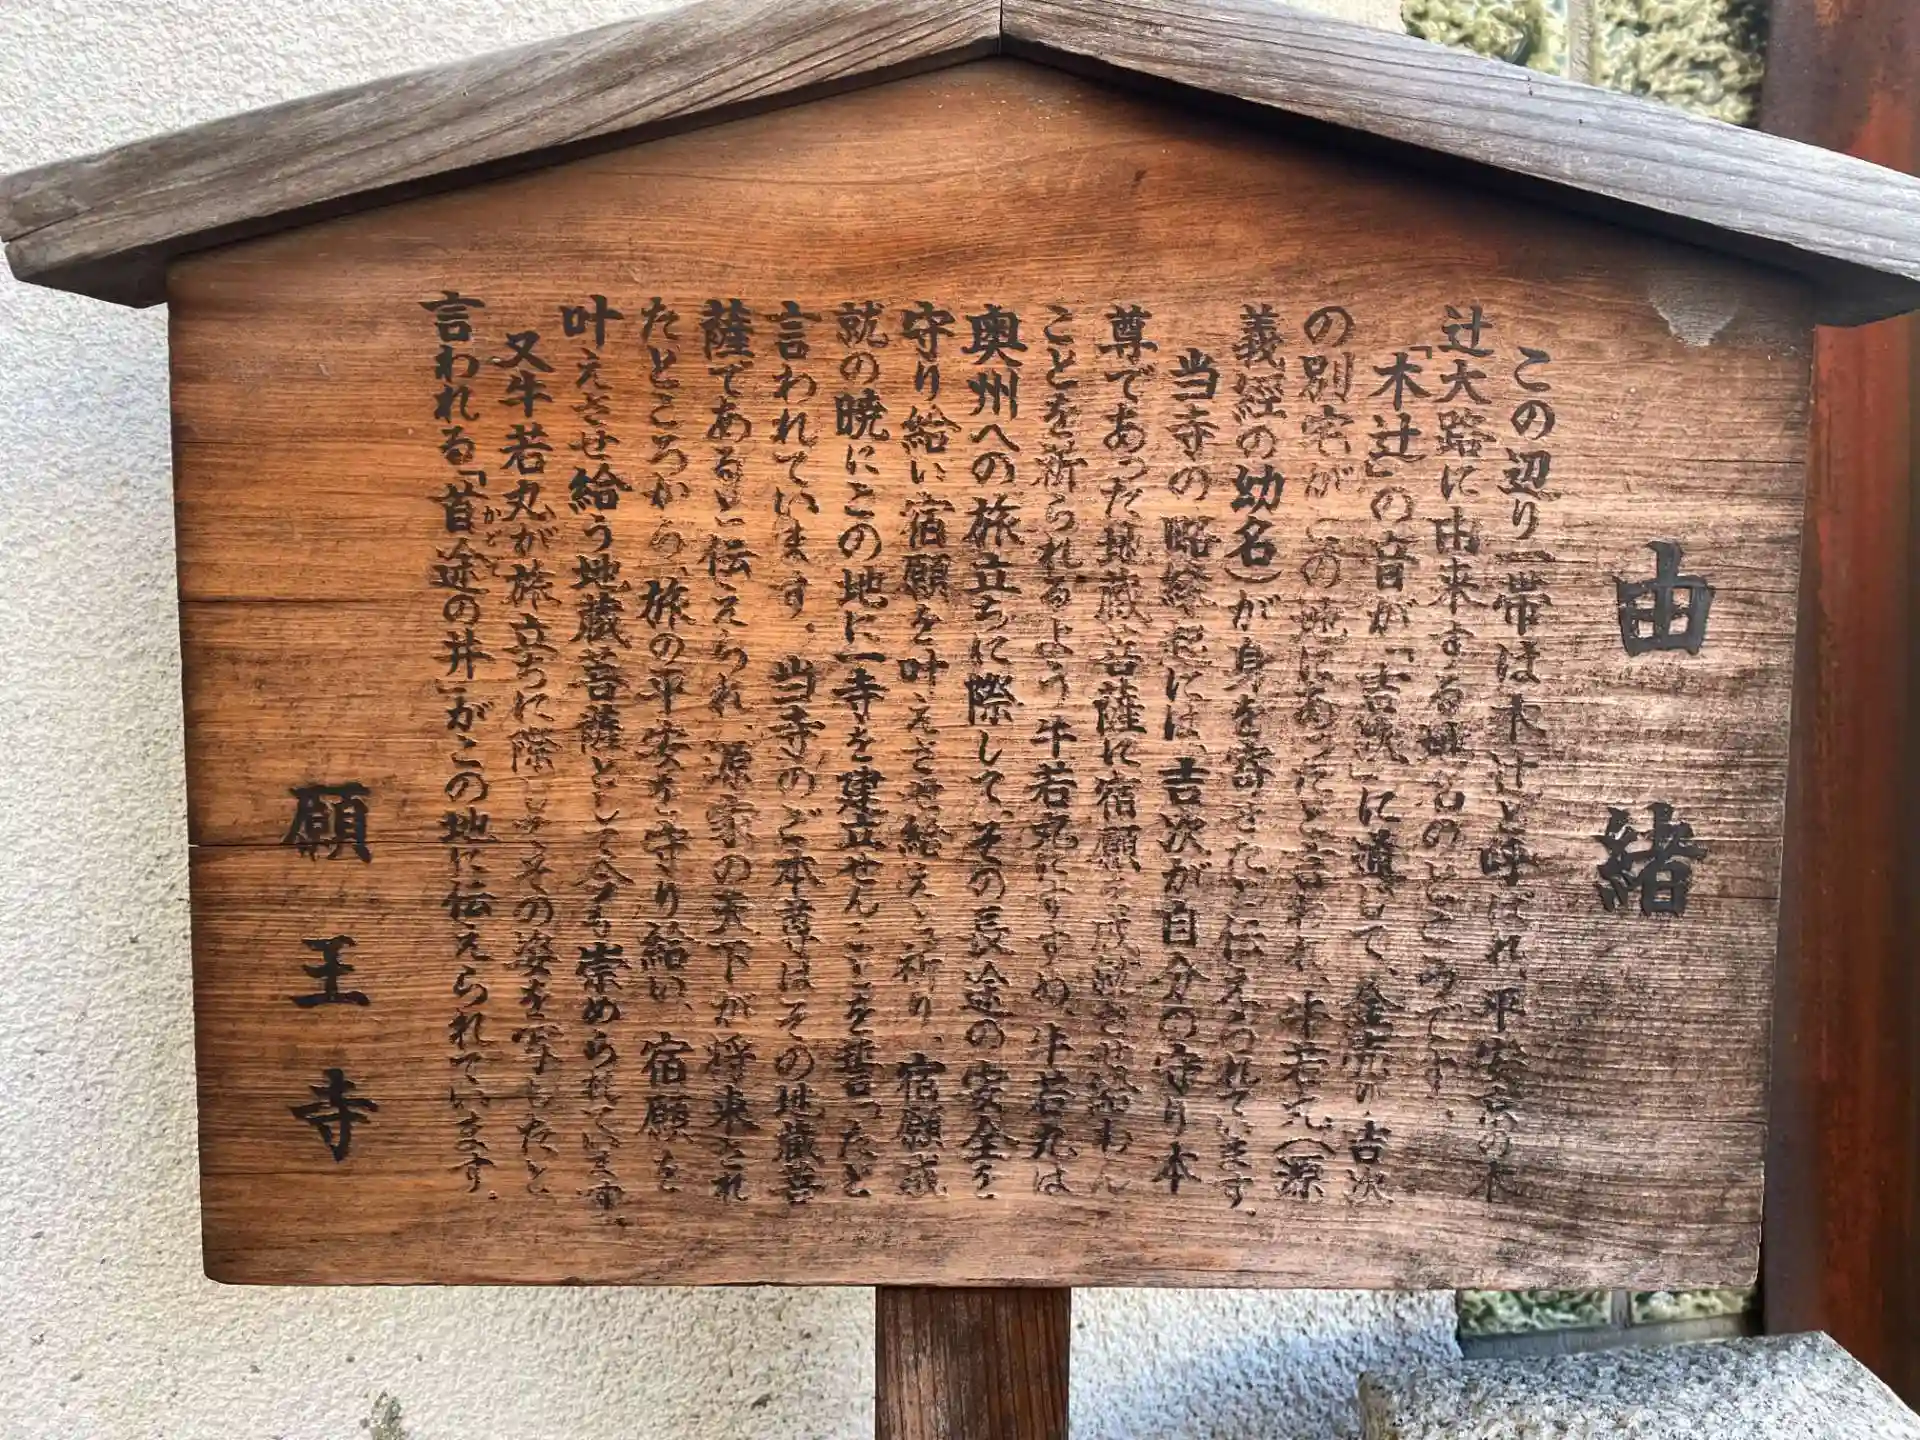 由緒
この辺り一帯は木辻と呼ばれ、平安京の木
辻大路に由来する地名のところです。
「木辻」の音が「吉次」に通じて、金売り吉次
の別宅がこの地にあったと言われ、牛若丸（源
義經の幼名）が身を寄せたと伝えられています。
当寺の略縁起には、吉次が自分の守り本
尊であった地蔵菩薩に宿願を成就させ給わん
ことを祈られるよう牛若丸にすすめ、牛若丸は
奥州への旅立ちに際して、その長途の安全を
守り給い宿願を叶えさせ給えと祈り、宿願成
就の暁にこの地に一寺を建立せんことを誓ったと
言われています。当寺のご本尊はその地蔵菩
薩であると伝えられ、源家の天下が将来され
たところから、旅の平安を守り給い、宿願を
叶えさせ給う地蔵菩薩として今も崇められています。
又牛若丸が旅立ちに際しその姿を写したと
言われる「首途の井」がこの地に伝えられています。
かどで
願王寺